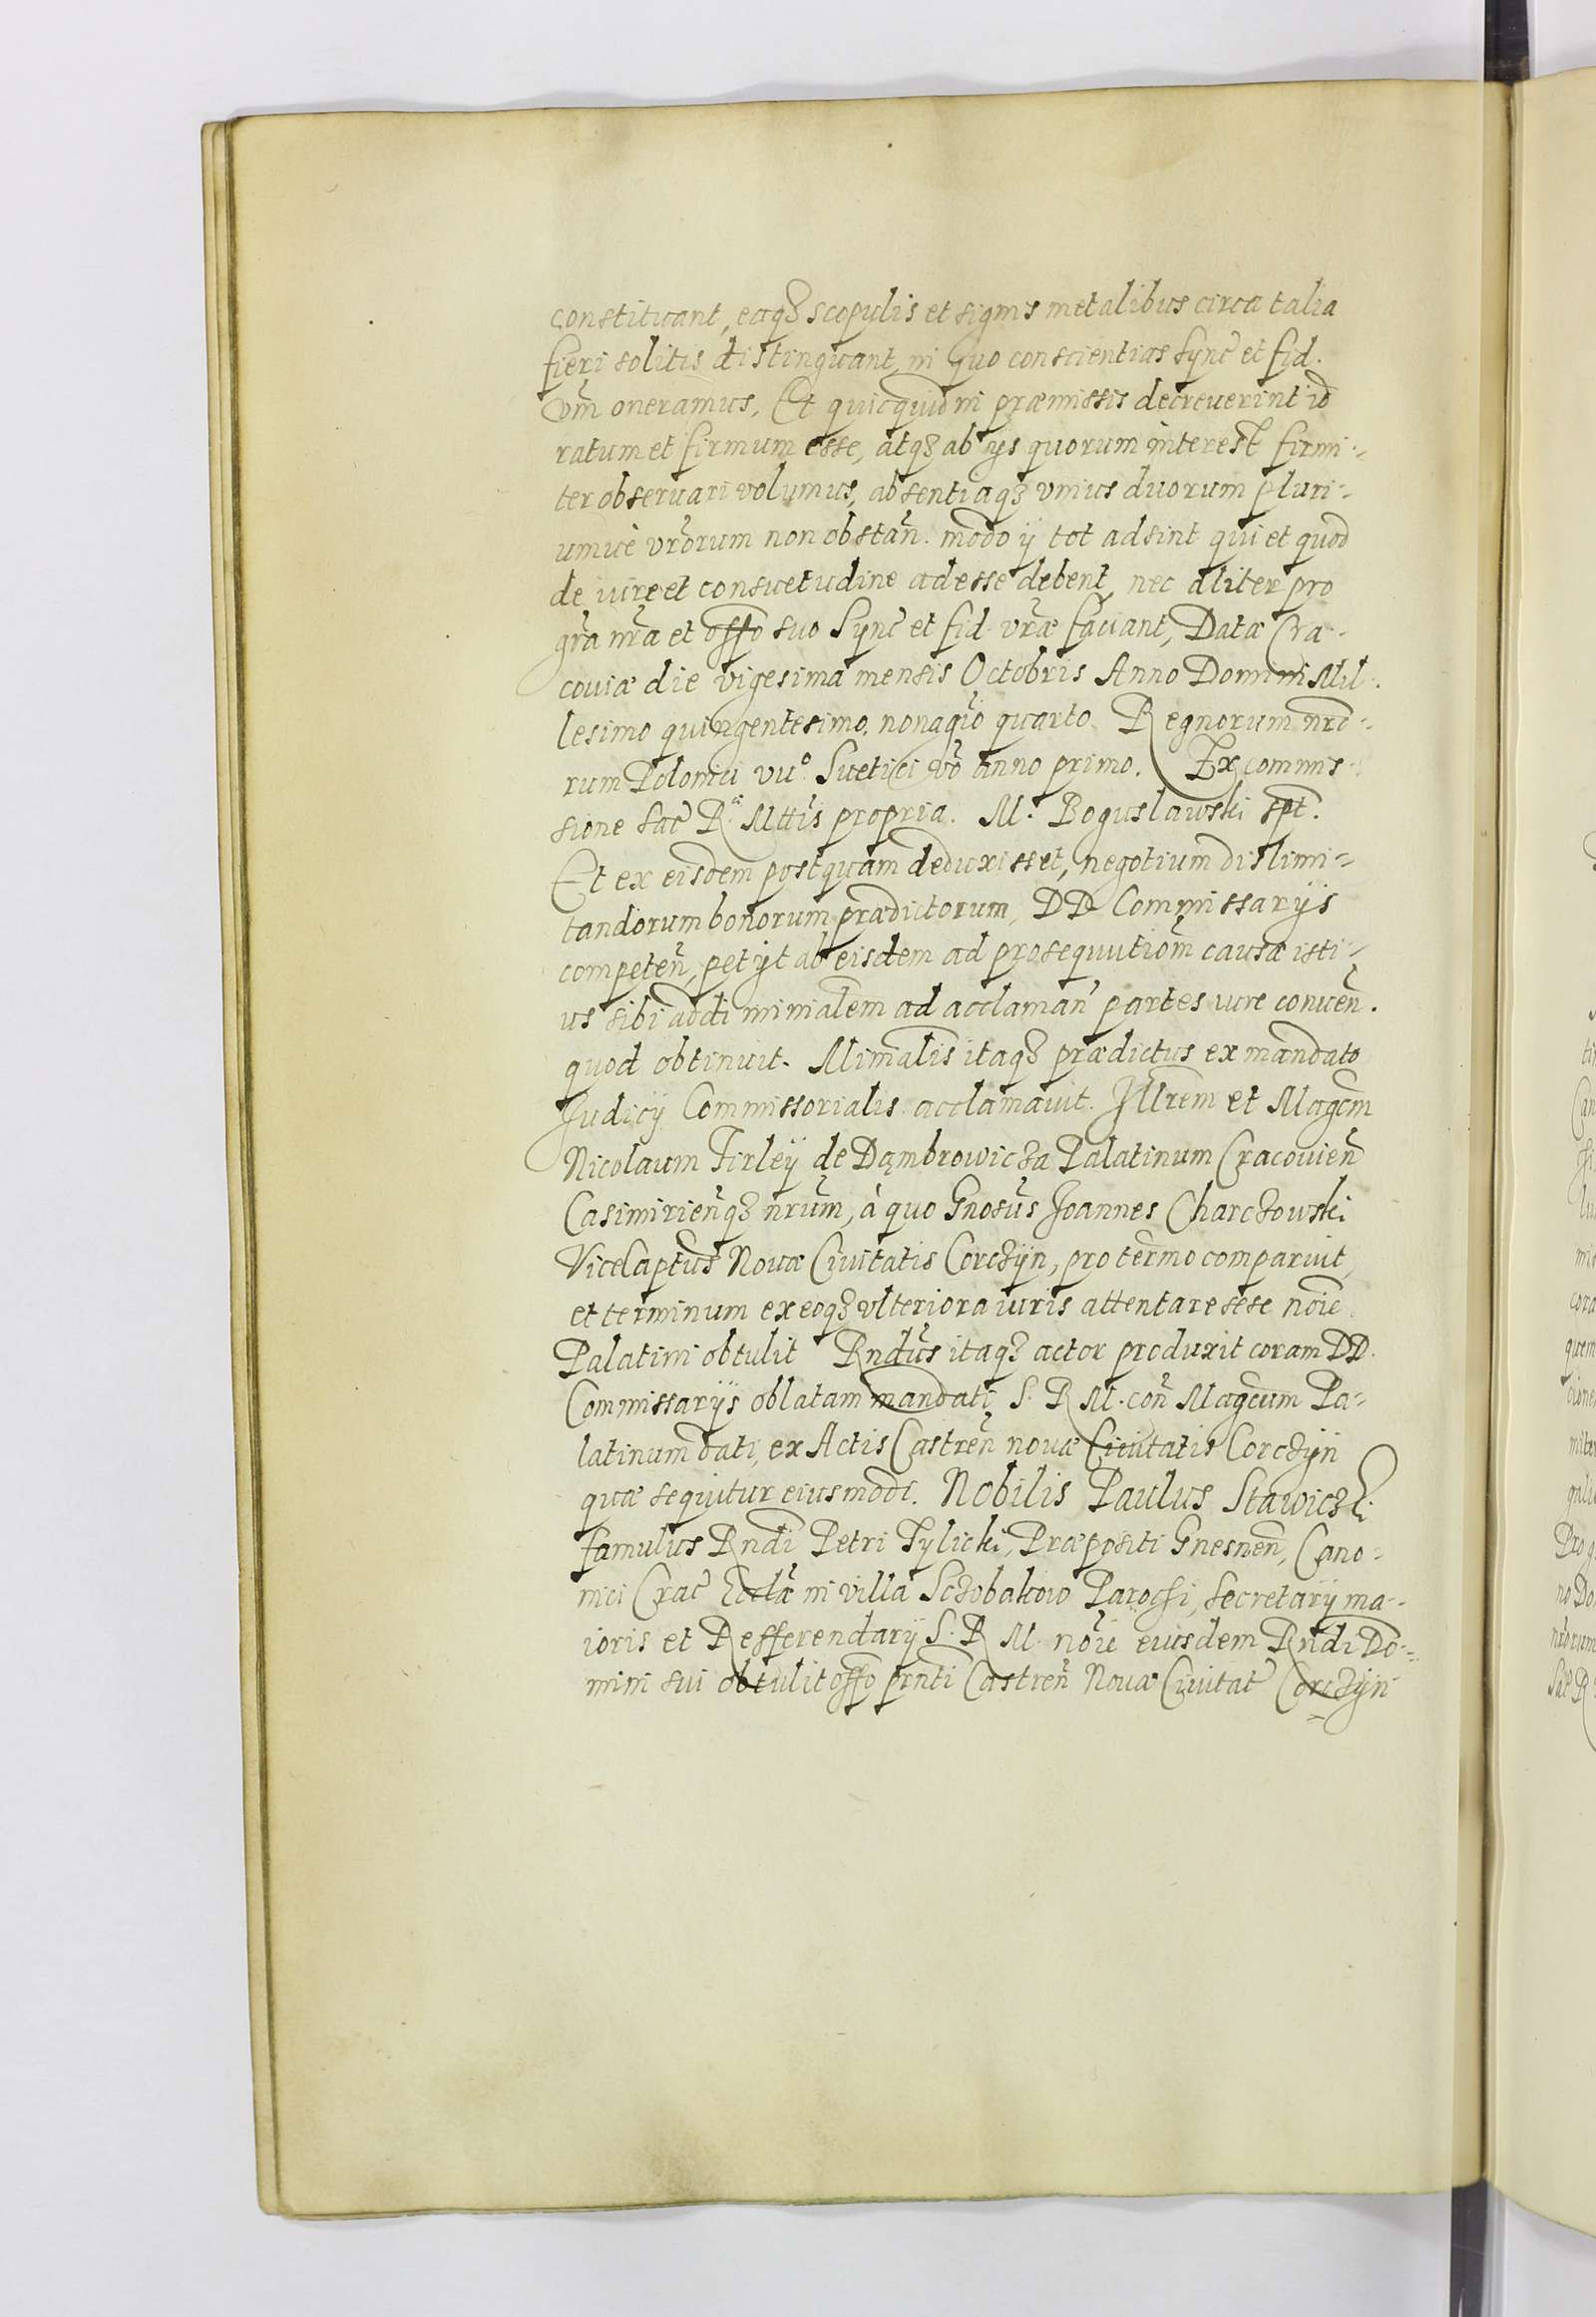 constituant, eaqꝫ scopulis et signis metalibus circa talia
fieri solitis distinguant, in quo conscientias Sync̃ et fid.
vrm̃ oneramus. Et quicquid in præmissis decreuerint id
ratum et firmum esse, atqꝫ ab ijs quorum interest firmi-
ter obseruari volumus, absentiaqꝫ vnius duorum pluri-
umue vrõrum non obstañ. modo ij tot adsint qui et quod
de iure et consuetudine adesse debent, nec aliter pro
grã nrã et offo suo Sync̃ et fid. vræ̃ faciant, Datæ Cra-
couiæ die vigesima mensis Octobris Anno Domini Mil-
lesimo quingentesimo, nonagõ quarto. Regnorum nrõ-
rum Polonici vııº Suetici võ anno primo. Ex commis-
sione Sac̃ R. Mttis propria. M. Boguslawski spt.
Et ex eisdem postquam deduxisset, negotium dislimi-
tandorum bonorum prædictorum, DD Commissarijs
competeñ, petijt ab eisdem ad prosequutiom̃ causæ isti-
us sibi addi minialem ad acclamañ partes iure conueñ.
quod obtinuit. Minialis itaqꝫ prædictus ex mandato
Judicij Commissorialis acclamauit. Jllrem̃ et Magcm̃
Nicolaum Firleÿ de Dąmbrowicza Palatinum Cracouieñ
Casimirieñqꝫ nrũm, à quo Gnosus̃ Joannes Charczowski
Vicecaptũs Nouæ Ciuitatis Corczÿn, pro termo comparuit,
et terminum ex eoqꝫ vlteriora iuris attentare sese noĩe
Palatini obtulit Rndũs itaqꝫ actor produxit coram DD.
Commissarijs oblatam mandati S. R M. coñ Magcum̃ Pa-
latinum dati, ex Actis Castreñ nouæ Ciuitatis Corczÿn
quæ sequitur eiusmodi. Nobilis Paulus Stawiczki
famulus Rndi Petri Tylicki, Præpositi Gnesneñ, Cano-
nici Crac̃ Ecclæ̃ in villa Parochi, Secretarij ma-
ioris et Refferendarij S. R M. noĩe eiusdem Rndi Do-
mini sui obtulit offo prñti Castreñ Nouæ Ciuitat̃ Corczÿn